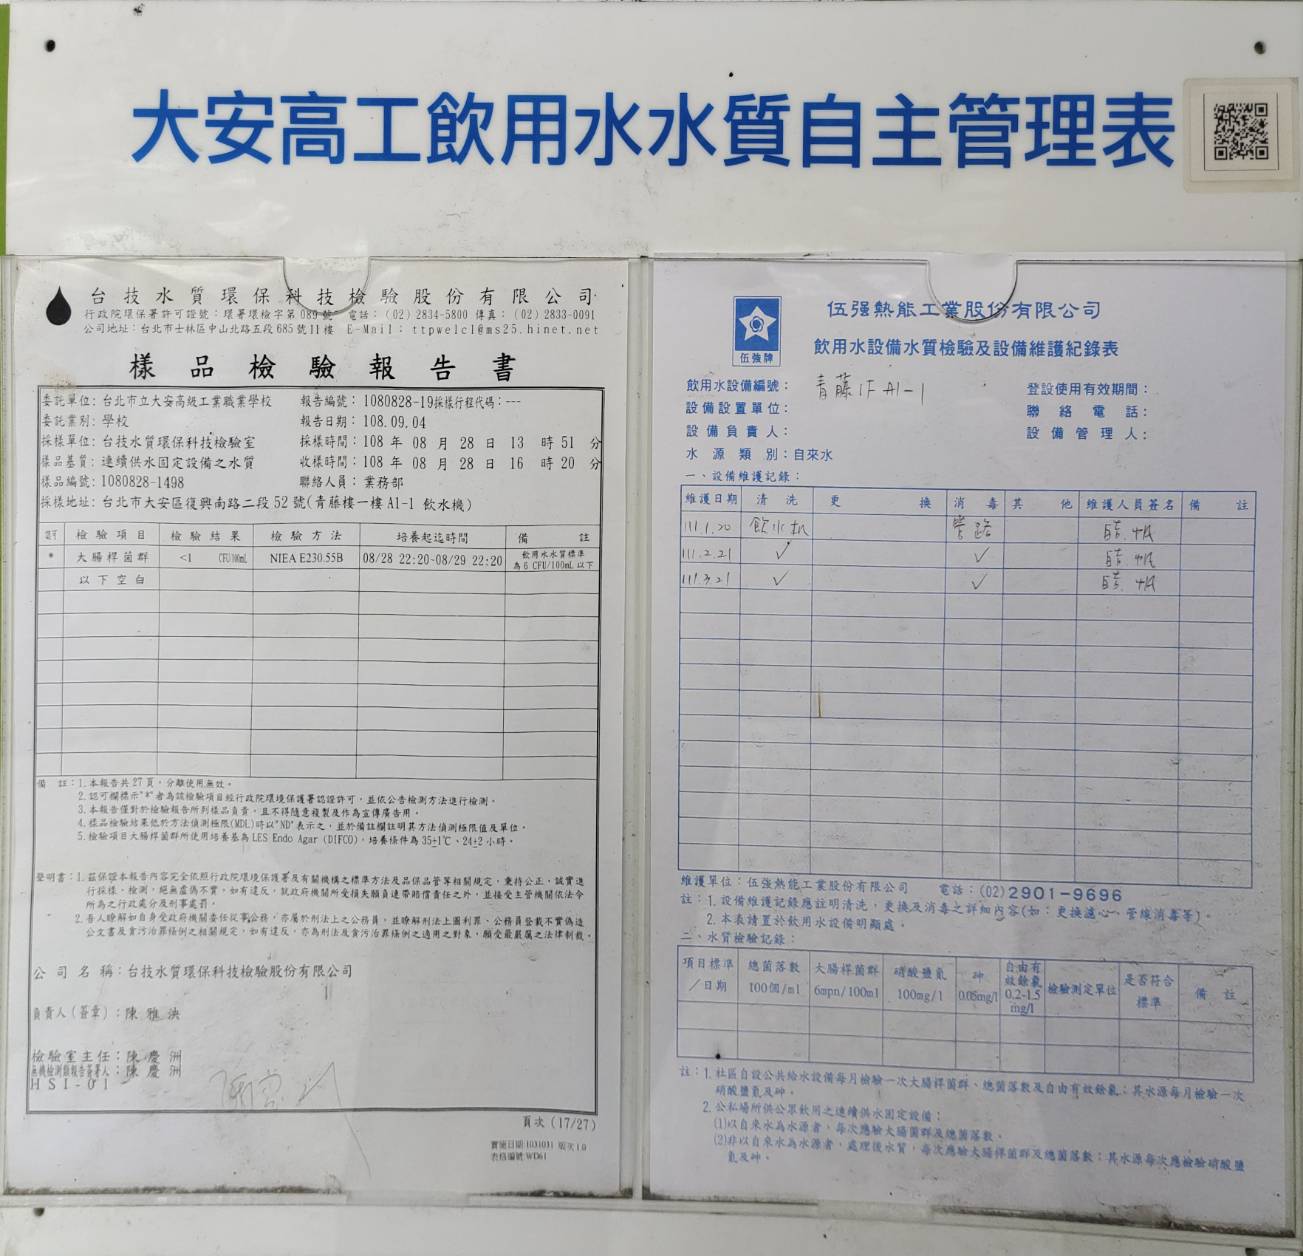 大安高工飲用水水質自主管理表
台技水質環保科技檢驗股份有限公司
行政院環保署許可證號：環署環檢字第089號 電話：(02) 2834-5800 傳真：(02) 2833-0091
公司地址：台北市士林區中山北路五段685號11樓 E-Mail： ttpwelcl@ms25.hinet.net
樣品檢驗報告書
委託單位：台北市立大安高級工業職業學校 報告編號：1080828-19採樣行程代碼：---
委託業別：學校 報告日期：108.09.04
採樣單位：台技水質環保科技檢驗室 採樣時間：108 年 08 月 28 日 13 時 51 分
樣品基質：連續供水固定設備之水質 收樣時間：108 年 08 月 28 日 16 時 20 分
樣品編號：1080828-1498 聯絡人員：業務部
採樣地址：台北市大安區復興南路二段52號(青藤樓一樓A1-1 飲水機)
認可 檢驗項目 檢驗結果 檢驗方法 培養起迄時間 備註
* 大腸桿菌群 <1 CFU/100mL NIEA E230.55B 08/28 22:20~08/29 22:20 飲用水水質標準
為6 CFU/100mL以下
以下空白
備 註：1.本報告共27頁，分離使用無效。
2.認可欄標示"*"者為該檢驗項目經行政院環境保護署認證許可，並依公告檢測方法進行檢測。
3.本報告僅對於檢驗報告所列樣品負責，且不得隨意複製及作為宣傳廣告用。
4.樣品檢驗結果低於方法偵測極限(MDL)時以"ND"表示之，並於備註欄註明其方法偵測極限值及單位。
5.檢驗項目大腸桿菌群所使用培養基為LES Endo Agar (DIFCO)，培養條件為35±1℃、24±2小時。
聲明書：1.茲保證本報告內容完全依照行政院環境保護署及有關機構之標準方法及品保品管等相關規定，秉持公正、誠實進
行採樣、檢測，絕無虛偽不實，如有違反，就政府機關所受損失願負連帶賠償責任之外，並接受主管機關依法令
所為之行政處分及刑事處罰。
2.吾人瞭解如自身受政府機關委任從事公務，亦屬於刑法上之公務員，並瞭解刑法上圖利罪、公務員登載不實偽造
公文書及貪污治罪條例之相關規定，如有違反，亦為刑法及貪污治罪條例之適用之對象，願受最嚴厲之法律制裁。
公司名稱：台技水質環保科技檢驗股份有限公司
負責人(簽章)：陳雅泱
檢驗室主任：陳慶洲
無機檢測類報告簽署人：陳慶洲
HSI-01
頁次 (17/27)
實施日期:1031031 版次1.0
表格編號:WD61
伍強牌
伍强熱能工業股份有限公司
飲用水設備水質檢驗及設備維護紀錄表
飲用水設備編號：青藤1F A1-1 登設使用有效期間：
設備設置單位： 聯絡電話：
設備負責人： 設備管理人：
水源類別：自來水
一、設備維護記錄：
維護日期 清洗 更換 消毒 其他 維護人員簽名 備註
111.1.20 飲水机 管路
111.2.21 ✓ ✓
111.3.21 ✓ ✓
維護單位：伍強熱能工業股份有限公司 電話：(02)2901-9696
註：1.設備維護記錄應註明清洗、更換及消毒之詳細內容(如：更換濾心、管線消毒等)。
2.本表請置於飲用水設備明顯處。
二、水質檢驗記錄：
項目標準／日期 總菌落數 100個/ml 大腸桿菌群 6mpn/100ml 硝酸鹽氮 100mg/l 砷 0.05mg/l 自由有效餘氯 0.2-1.5 mg/l 檢驗測定單位 是否符合標準 備註
註：1.社區自設公共給水設備每月檢驗一次大腸桿菌群、總菌落數及自由有效餘氯；其水源每月檢驗一次
硝酸鹽氮及砷。
2.公私場所供公眾飲用之連續供水固定設備：
(1)以自來水為水源者，每次應驗大腸菌群及總菌落數。
(2)非以自來水為水源者，處理後水質，每次應驗大腸桿菌群及總菌落數；其水源每次應檢驗硝酸鹽
氮及砷。